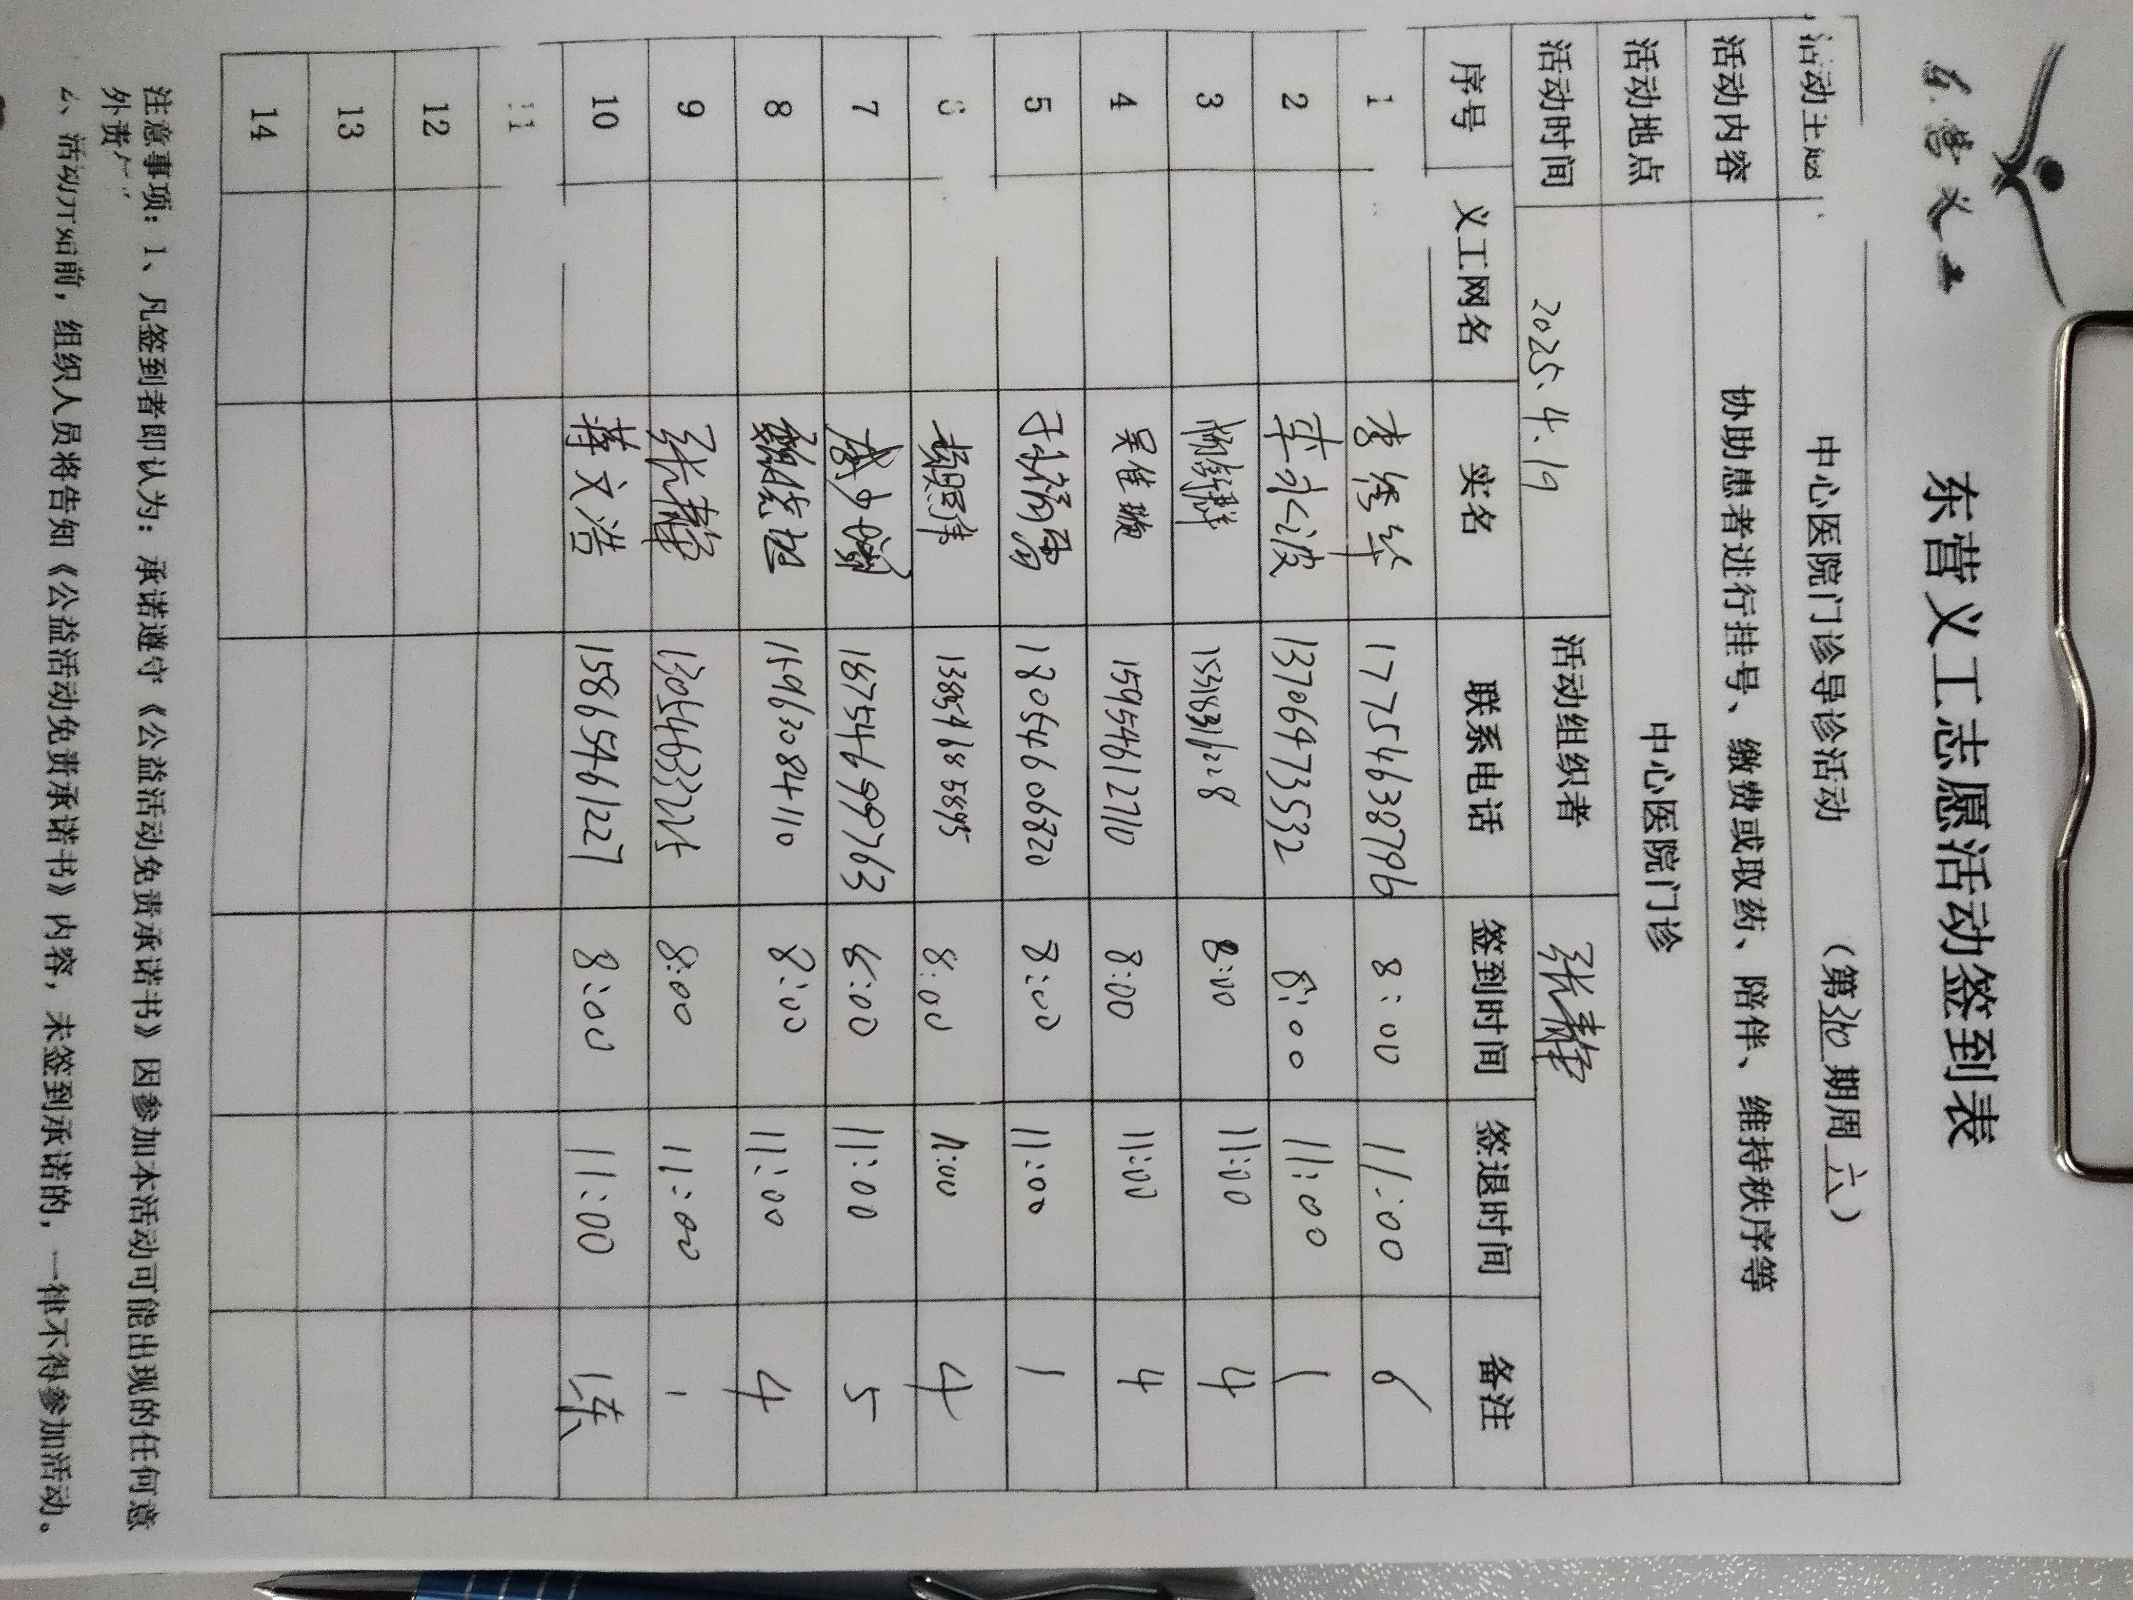 东营义工
东营义工志愿活动签到表
活动主题 中心医院门诊导诊活动 （第 期周六）
活动内容 协助患者进行挂号、缴费或取药、陪伴、维持秩序等
活动地点 中心医院门诊
活动时间 2025.4.19 活动组织者 张静
序号 义工网名 实名 联系电话 签到时间 签退时间 备注
1 17754638796 8:00 11:00 6
2 13706473532 8:00 11:00 1
3 8:00 11:00 4
4 15954612710 8:00 11:00 4
5 18054606820 8:00 11:00 1
6 8:00 11:00 4
7 8:00 11:00 5
8 8:00 11:00 4
9 张静 8:00 11:00 1
10 蒋文浩 15865461227 8:00 11:00
11
12
13
14
注意事项：1、凡签到者即认为：承诺遵守《公益活动免责承诺书》因参加本活动可能出现的任何意
外责
2、活动开始前，组织人员将告知《公益活动免责承诺书》内容，未签到承诺的，一律不得参加活动。